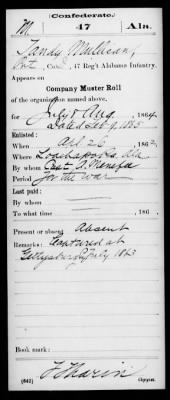 (Confederate.)
M 47 Ala.
Tandy
Pvt., Co. , 47 Reg't Alabama Infantry.
Appears on
Company Muster Roll
of the organization named above,
for July & Aug, 1864
Dated Feb 9, 1865
Enlisted:
When 26, 186
Where Loachapoka Ala
By Capt
Period For the war
Last paid:
By
To what time , 186 .
Present or absent Absent
Remarks: Captured at
Gettysburg July 1863
Book mark:
(642) Copyist.